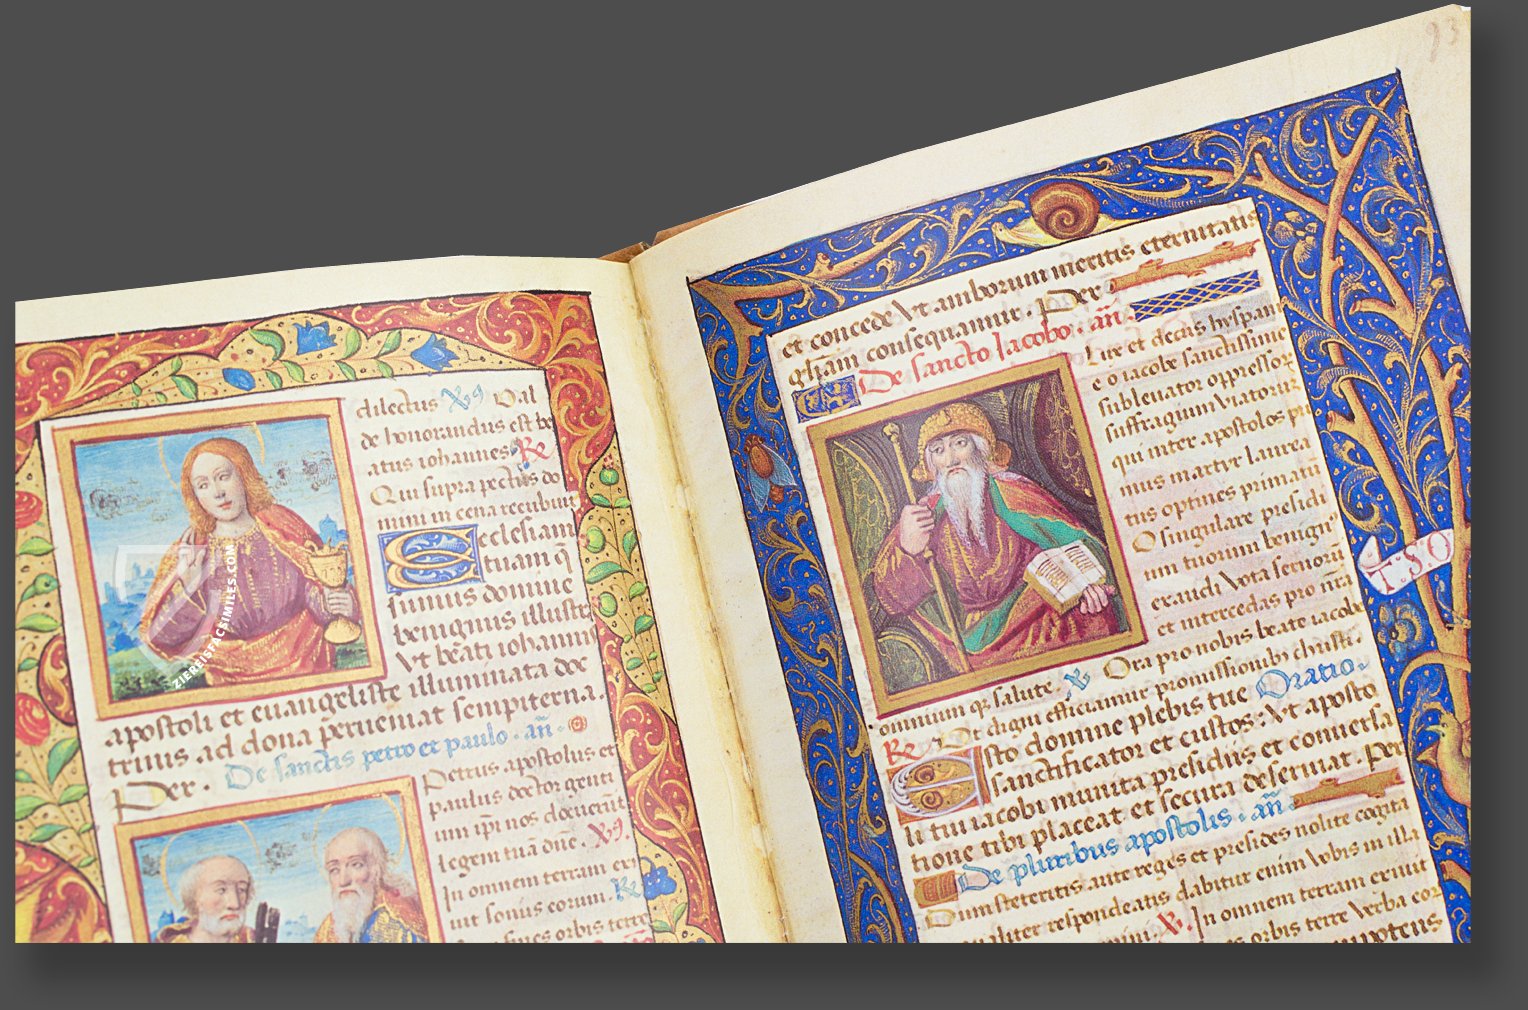 dilectus Val
de honorandus est be
atus iohannes. R
Qui supra pectus do
mini in cena recubuit
Ecclesiam
tuam q̄
sumus domine
benignus illustra
Vt beati iohannis
apostoli et euangeliste illuminata doc
trinis ad dona perueniat sempiterna.
Per. De sanctis petro et paulo. añ.
Petrus apostolus et
paulus doctor genti
um ipi nos docuerūt
legem tuā dñe.
In omnem terram exi
uit sonus eorum. R
fines orbis terre
93
et concede Vt amborum meritis eternitatis
gliam consequamur. Per
De sancto Iacobo. añ.
Lux et decus hyspani
e o iacobe sanctissime
subleuator oppressor
suffragium Viatorum
qui inter apostolos pri
mus martyr laurea
tus optines primatū
O singulare presidi
um tuorum benigne
exaudi Vota seruorū
et intercedas pro nr̄a
omnium q; salute. Ora pro nobis beate iacobe
R Vt digni efficiamur promissionibus christi. Oratio.
Esto domine plebis tue
sanctificator et custos: Vt aposto
li tui iacobi munita presidiis et conuersa
tione tibi placeat et secura deseruiat. Per
De pluribus apostolis. añ.
Dum steteritis ante reges et presides nolite cogita
re qualiter respondeatis dabitur enim Vobis in illa
In omnem terram exiuit
fines orbis terre Verba eor
F.S.O
ZIEREISFACSIMILES.COM